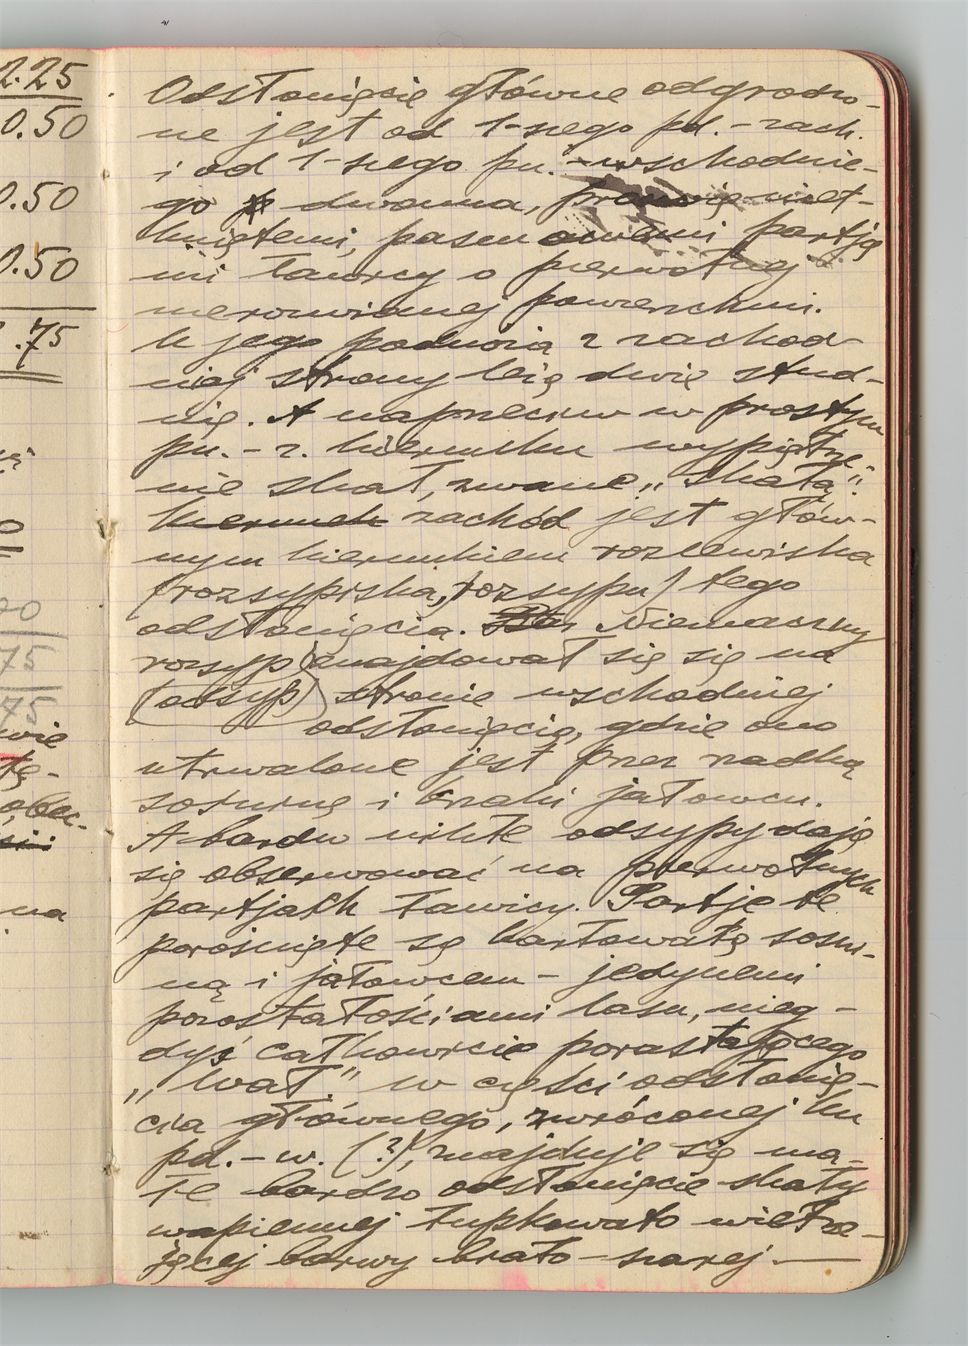 2.25
0.50
0.50
0.50
.75
0
20
75
75
wie
na
Odsłonięcie główne odgrodzo-
ne jest od 1-szego pd.-zach.
i od 1-szego pn.-wschodnie-
go dwoma,
kniętemi, pasem partja
mi ławicy o pierwotnej
nierozwianej powierzchni.
U jego podnóża z zachod-
niej strony leżą dwie stud-
nie. A naprzeciw w prostym
pn.-z. kierunku wypiętrze-
nie skał, zwane „skałą".
kierunek zachód jest głów-
nym kierunkiem rozlewiska
(rozsypiska, rozsypu) tego
odsłonięcia. Nieznaczny
rozsyp znajdował się się na
(odsyp) stronie wschodniej
odsłonięcia, gdzie ono
utrwalone jest przez rzadką
sośninę i krzaki jałowcu.
A bardzo nikłe odsypy dają
się obserwować na pierwotnych
partjach ławicy. Partje te
porośnięte są karłowatą sosni-
ną i jałowcem – jedynemi
pozostałościami lasu, nieg-
dyś całkowicie porastającego
„wał". W części odsłonię-
cia głównego, zwróconej ku
pd.-w. (?), znajduje się ma-
łe bardzo odsłonięcie skały
wapiennej łupkowato wietrze-
jącej barwy biało-szarej. —